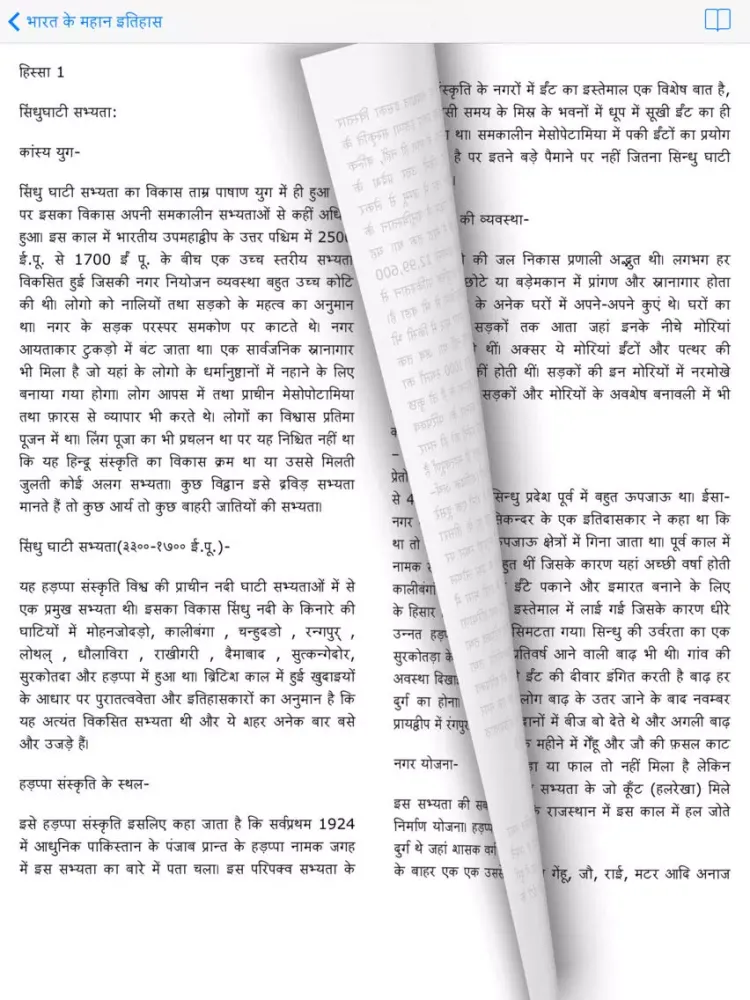 भारत के महान इतिहास
हिस्सा 1
सिंधुघाटी सभ्यता:
कांस्य युग-
सिंधु घाटी सभ्यता का विकास ताम्र पाषाण युग में ही हुआ
पर इसका विकास अपनी समकालीन सभ्यताओं से कहीं
हुआ। इस काल में भारतीय उपमहाद्वीप के उत्तर पश्चिम में
ई.पू. से 1700 ईं पू. के बीच एक उच्च स्तरीय सभ्यता
विकसित हुई जिसकी नगर नियोजन व्यवस्था बहुत उच्च कोटि
की थी। लोगो को नालियों तथा सड़को के महत्व का अनुमान
था। नगर के सड़क परस्पर समकोण पर काटते थे। नगर
आयताकार टुकड़ो में बंट जाता था। एक सार्वजनिक स्नानागार
भी मिला है जो यहां के लोगो के धर्मानुष्ठानों में नहाने के लिए
बनाया गया होगा। लोग आपस में तथा प्राचीन मेसोपोटामिया
तथा फ़ारस से व्यापार भी करते थे। लोगों का विश्वास प्रतिमा
पूजन में था। लिंग पूजा का भी प्रचलन था पर यह निश्चित नहीं था
कि यह हिन्दू संस्कृति का विकास क्रम था या उससे मिलती
जुलती कोई अलग सभ्यता। कुछ विद्वान इसे द्रविड़ सभ्यता
मानते हैं तो कुछ आर्य तो कुछ बाहरी जातियों की सभ्यता।
सिंधु घाटी सभ्यता(३३००-१७०० ई.पू.)-
यह हड़प्पा संस्कृति विश्व की प्राचीन नदी घाटी सभ्यताओं में से
एक प्रमुख सभ्यता थी। इसका विकास सिंधु नदी के किनारे की
घाटियों में मोहनजोदड़ो, कालीबंगा , चन्हुदडो , रन्गपुर् ,
लोथल् , धौलाविरा , राखीगरी , दैमाबाद , सुत्कन्गेदोर,
सुरकोतदा और हड़प्पा में हुआ था। ब्रिटिश काल में हुई खुदाइयों
के आधार पर पुरातत्ववेत्ता और इतिहासकारों का अनुमान है कि
यह अत्यंत विकसित सभ्यता थी और ये शहर अनेक बार बसे
और उजड़े हैं।
हड़प्पा संस्कृति के स्थल-
इसे हड़प्पा संस्कृति इसलिए कहा जाता है कि सर्वप्रथम 1924
में आधुनिक पाकिस्तान के पंजाब प्रान्त के हड़प्पा नामक जगह
में इस सभ्यता का बारे में पता चला। इस परिपक्व सभ्यता के
से 4
नगर
था तो
नामक
कालीबंगा
के हिसार
उन्नत
सुरकोतड़ा के
अवस्था
दुर्ग का होना
प्रायद्वीप में
नगर योजना-
इस सभ्यता की
निर्माण योजना।
दुर्ग थे जहां शासक
के बाहर एक एक
के नगरों में ईंट का इस्तेमाल एक विशेष बात है,
समय के मिस्र के भवनों में धूप में सूखी ईंट का ही
था। समकालीन मेसोपोटामिया में पकी ईंटों का प्रयोग
है पर इतने बड़े पैमाने पर नहीं जितना सिन्धु घाटी
की व्यवस्था-
की जल निकास प्रणाली अद्भुत थी। लगभग हर
छोटे या बड़ेमकान में प्रांगण और स्नानागार होता
के अनेक घरों में अपने-अपने कुएं थे। घरों का
सड़कों तक आता जहां इनके नीचे मोरियां
थीं। अक्सर ये मोरियां ईंटों और पत्थर की
होती थीं। सड़कों की इन मोरियों में नरमोखे
सड़कों और मोरियों के अवशेष बनावली में भी
सिन्धु प्रदेश पूर्व में बहुत उपजाऊ था। ईसा-
के एक इतिदासकार ने कहा था कि
क्षेत्रों में गिना जाता था। पूर्व काल में
थीं जिसके कारण यहां अच्छी वर्षा होती
ईंटे पकाने और इमारत बनाने के लिए
इस्तेमाल में लाई गई जिसके कारण धीरे
सिमटता गया। सिन्धु की उर्वरता का एक
आने वाली बाढ़ भी थी। गांव की
ईंट की दीवार इंगित करती है बाढ़ हर
लोग बाढ़ के उतर जाने के बाद नवम्बर
में बीज बो देते थे और अगली बाढ़
महीने में गेँहू और जौ की फ़सल काट
या फाल तो नहीं मिला है लेकिन
सभ्यता के जो कूँट (हलरेखा) मिले
राजस्थान में इस काल में हल जोते
गेंहू, जौ, राई, मटर आदि अनाज